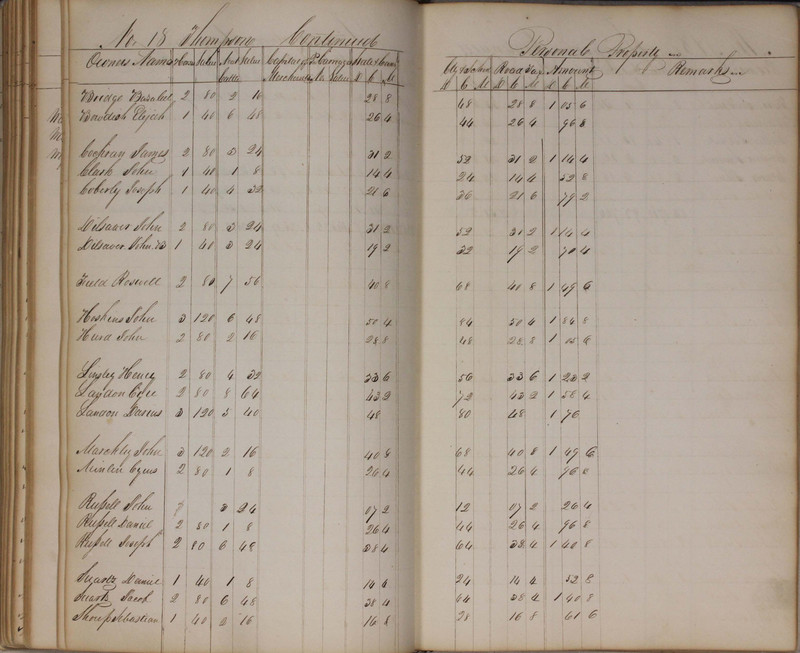 No. 18 Thompson Continued Personal Property
Owners Names Horses Value Neat Cattle Value Capital of Merchants State & County $ C M Cty & School $ C M Road Tax $ C M Amount $ C M Remarks
Bridge 2 80 2 16 28 8 48 28 8 1 05 6
Elijah 1 40 6 48 26 4 44 26 4 96 8
Cochran James 2 80 3 24 31 2 52 31 2 1 14 4
Clark John 1 40 1 8 14 4 24 14 4 52 8
Coberly Joseph 1 40 4 32 21 6 36 21 6 79 2
Dilsaver John 2 80 3 24 31 2 52 31 2 1 14 4
Dilsaver John 1 40 3 24 19 2 32 19 2 70 4
Field Roswell 2 80 7 56 40 8 68 40 8 1 49 6
Hoskins John 3 120 6 48 50 4 84 50 4 1 84 8
Hurd John 2 80 2 16 28 8 48 28 8 1 05 6
Henry 2 80 4 32 33 6 56 33 6 1 23 2
Landon 2 80 8 64 43 2 72 43 2 1 58 4
Landon Darius 3 120 5 40 48 80 48 1 76
John 3 120 2 16 40 8 68 40 8 1 49 6
Cyrus 2 80 1 8 26 4 44 26 4 96 8
Russell John 3 24 07 2 12 07 2 26 4
Russell Daniel 2 80 1 8 26 4 44 26 4 96 8
Russell Joseph 2 80 6 48 38 4 64 38 4 1 40 8
Swartz Daniel 1 40 1 8 14 4 24 14 4 52 8
Swartz Jacob 2 80 6 48 38 4 64 38 4 1 40 8
Sebastian 1 40 2 16 16 8 28 16 8 61 6